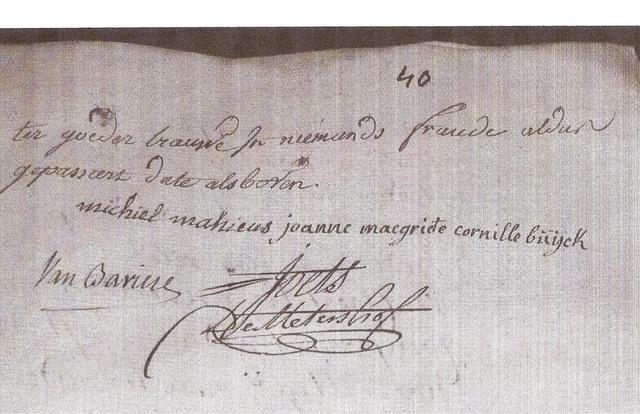 40
ter goeder trauwe In niemands fraude aldus
gepasseert date als boven.
michiel mahieus joanne macgriete cornille buijck
Van Bariese
De Metershof